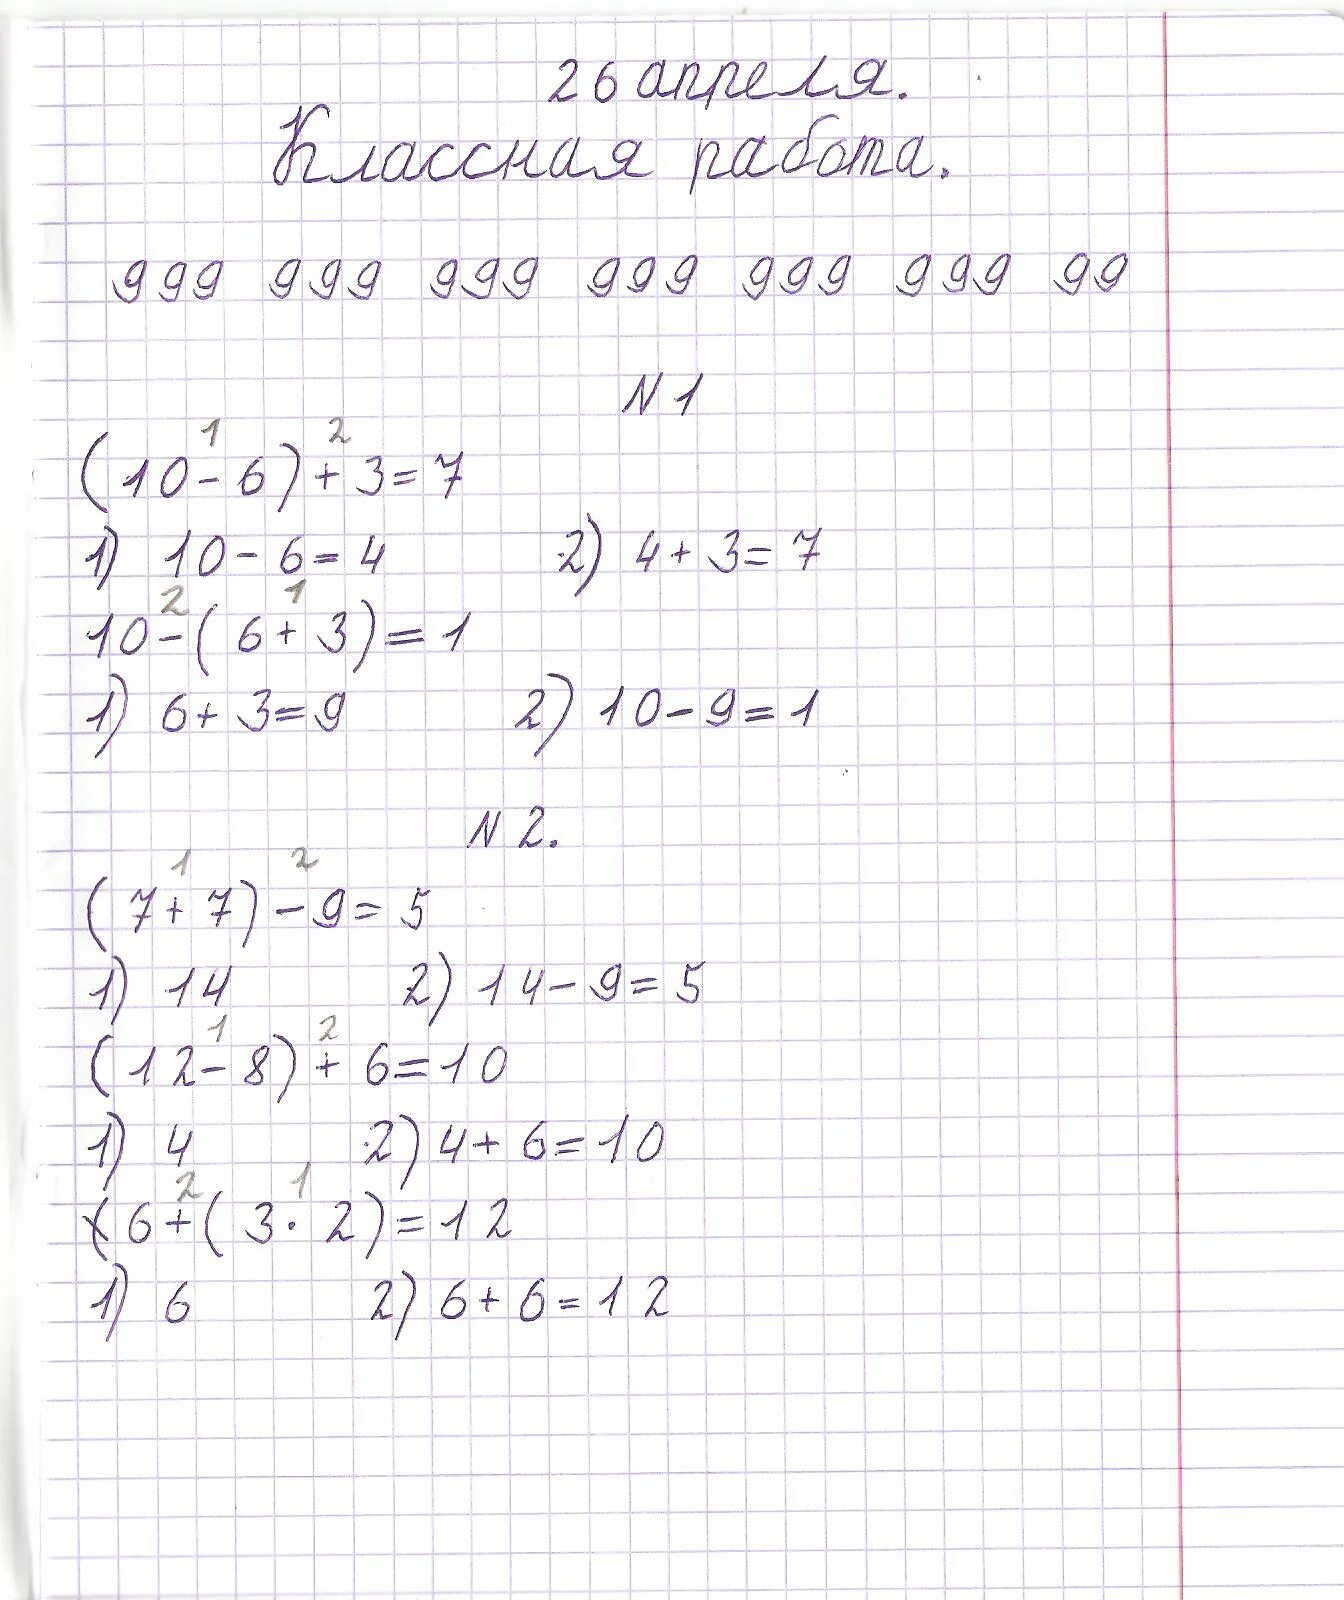 26 апреля.
Классная работа.
999 999 999 999 999 999 99
N 1
1 2
(10 - 6) + 3 = 7
1) 10 - 6 = 4 2) 4 + 3 = 7
2 1
10 - (6 + 3) = 1
1) 6 + 3 = 9 2) 10 - 9 = 1
N 2.
1 2
(7 + 7) - 9 = 5
1) 14 2) 14 - 9 = 5
1 2
(12 - 8) + 6 = 10
1) 4 2) 4 + 6 = 10
2 1
6 + (3 · 2) = 12
1) 6 2) 6 + 6 = 12